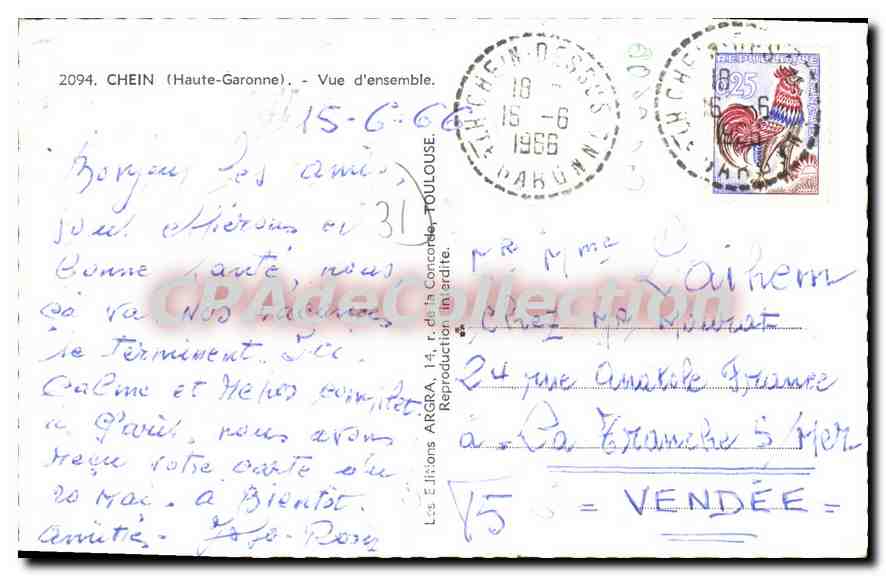 2094. CHEIN (Haute-Garonne). - Vue d'ensemble.
15-6-66
Bonjour les amis,
31
bonne santé, nous
ça va. Nos vacances
se terminent. Ici
Calme et repos complet.
à Paris. nous avons
reçu votre carte du
20 Mai. à Bientôt.
amitiés.
Les Editions ARGRA, 14, r. de la Concorde, TOULOUSE.
Reproduction interdite.
CHEIN-DESSUS
18 -
16 -6
1966
HTE GARONNE
REPUBLIQUE
0,25
18
16 -6
Mr Mme
Laihem
chez Mr
24 rue Anatole France
à - La Tranche S/Mer
= VENDÉE =
CPAdeCollection